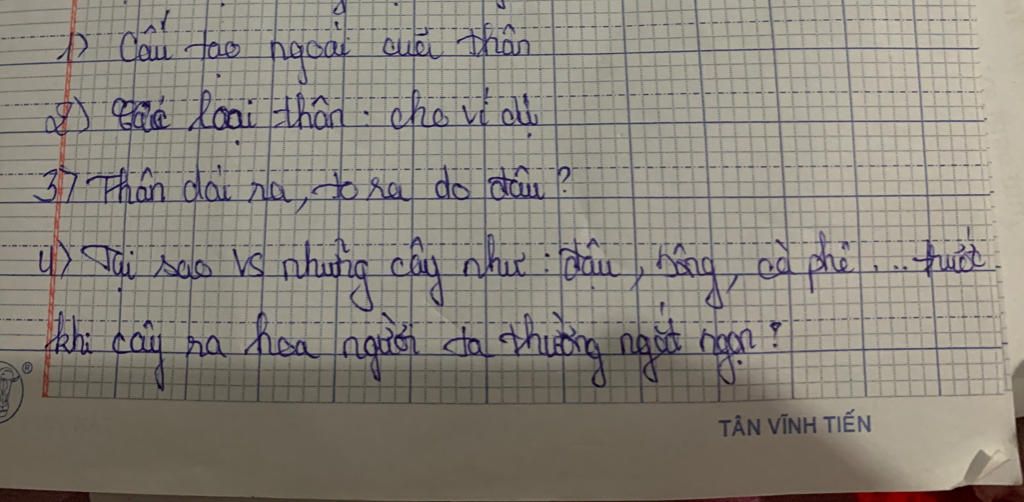 1) Cấu tạo ngoài cuả thân
2) Các loại thân. cho ví dụ
3) Thân dài ra, to ra do đâu?
4) Tại sao vs những cây như: đậu, bông, cà phê... trước
khi cây ra hoa người ta thường ngắt ngọn?
®
TÂN VĨNH TIẾN